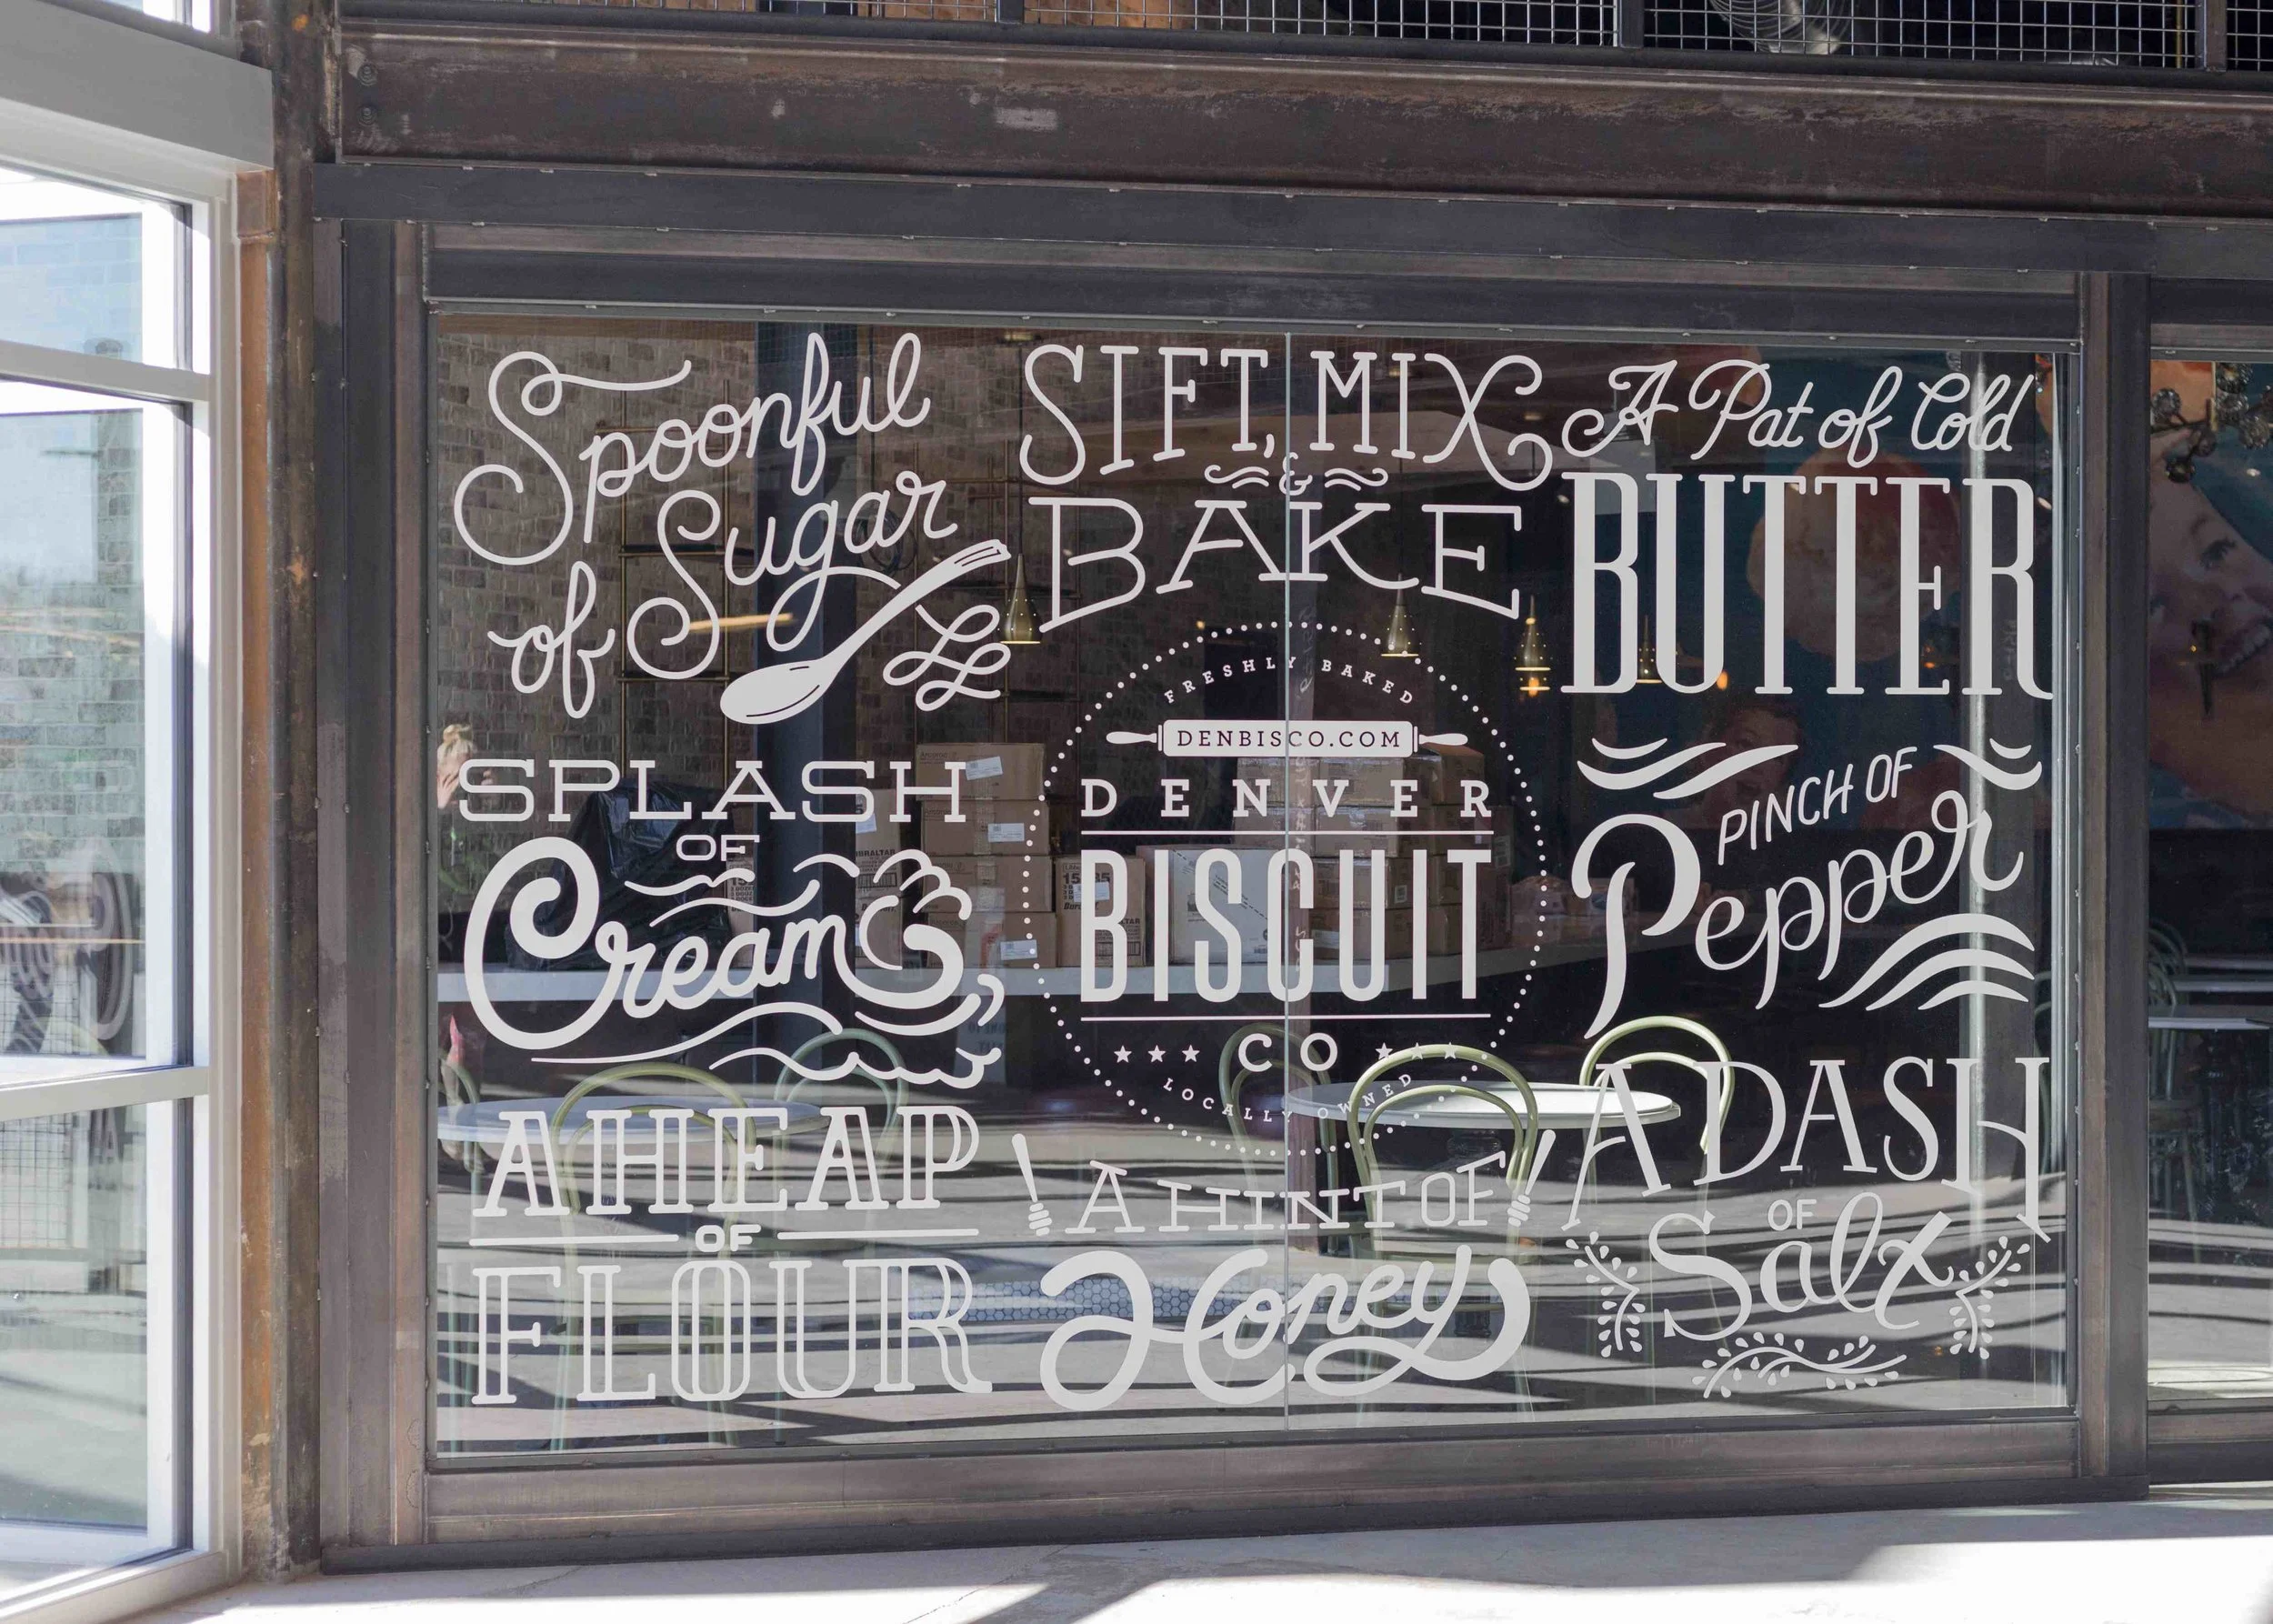 Spoonful
of Sugar
SPLASH
OF
Cream
A HEAP
OF
FLOUR
SIFT, MIX
&
BAKE
FRESHLY BAKED
DENBISCO.COM
DENVER
BISCUIT
CO
LOCALLY OWNED
A HINT OF
Honey
A Pat of Cold
BUTTER
PINCH OF
Pepper
A DASH
OF
Salt